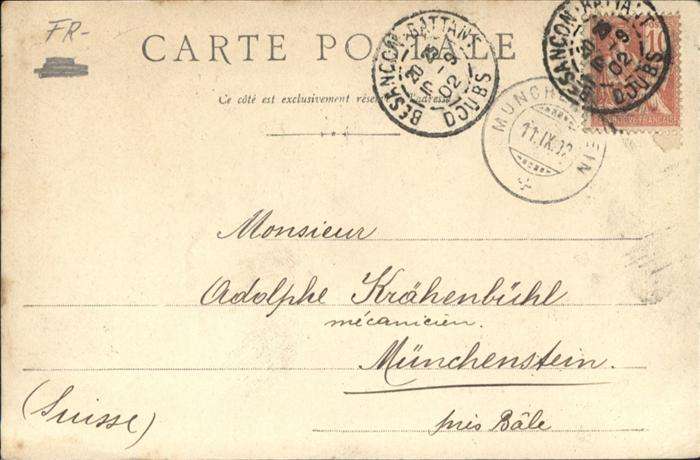 FR-
CARTE POSTALE
Ce côté est exclusivement réservé à l'adresse
BESANCON-BATTANT
9
02
DOUBS
BESANCON-BATTANT
9
02
DOUBS
10
MÜNCHENSTEIN
11.IX.02
Monsieur
Adolphe Krähenbühl
mécanicien.
Münchenstein.
(Suisse)
près Bâle